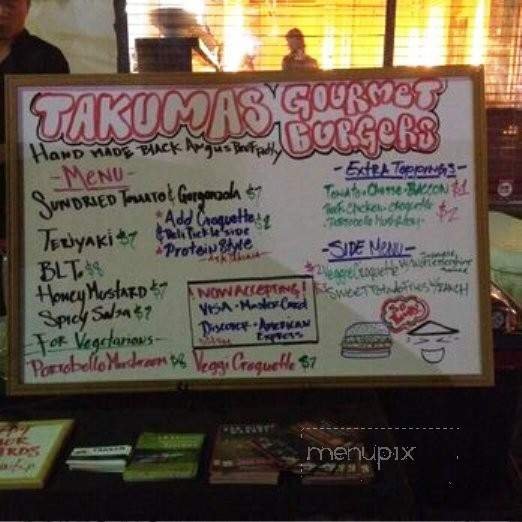 TAKUMAS GOURMET BURGERS
HAND MADE BLACK Angus Beef Patty
- MENU -
SUNDRIED TOMATO & Gorgonzola $7
TERIYAKI $7
B.L.T. $8
Honey Mustard $7
Spicy Salsa $7
* Add Croquette
& Deli Pickle side
* Protein Style
- For Vegetarians -
Portobello Mushroom $8 Veggi Croquette $7
! NOW ACCEPTING !
VISA · MasterCard
Discover · American
Express
- EXTRA Toppings -
Tomato · Cheese · BACON $1
Chicken croquette
Portobello Mushroom $2
- SIDE MENU -
Veggie Croquette
SWEET POTATO FRIES
menupix